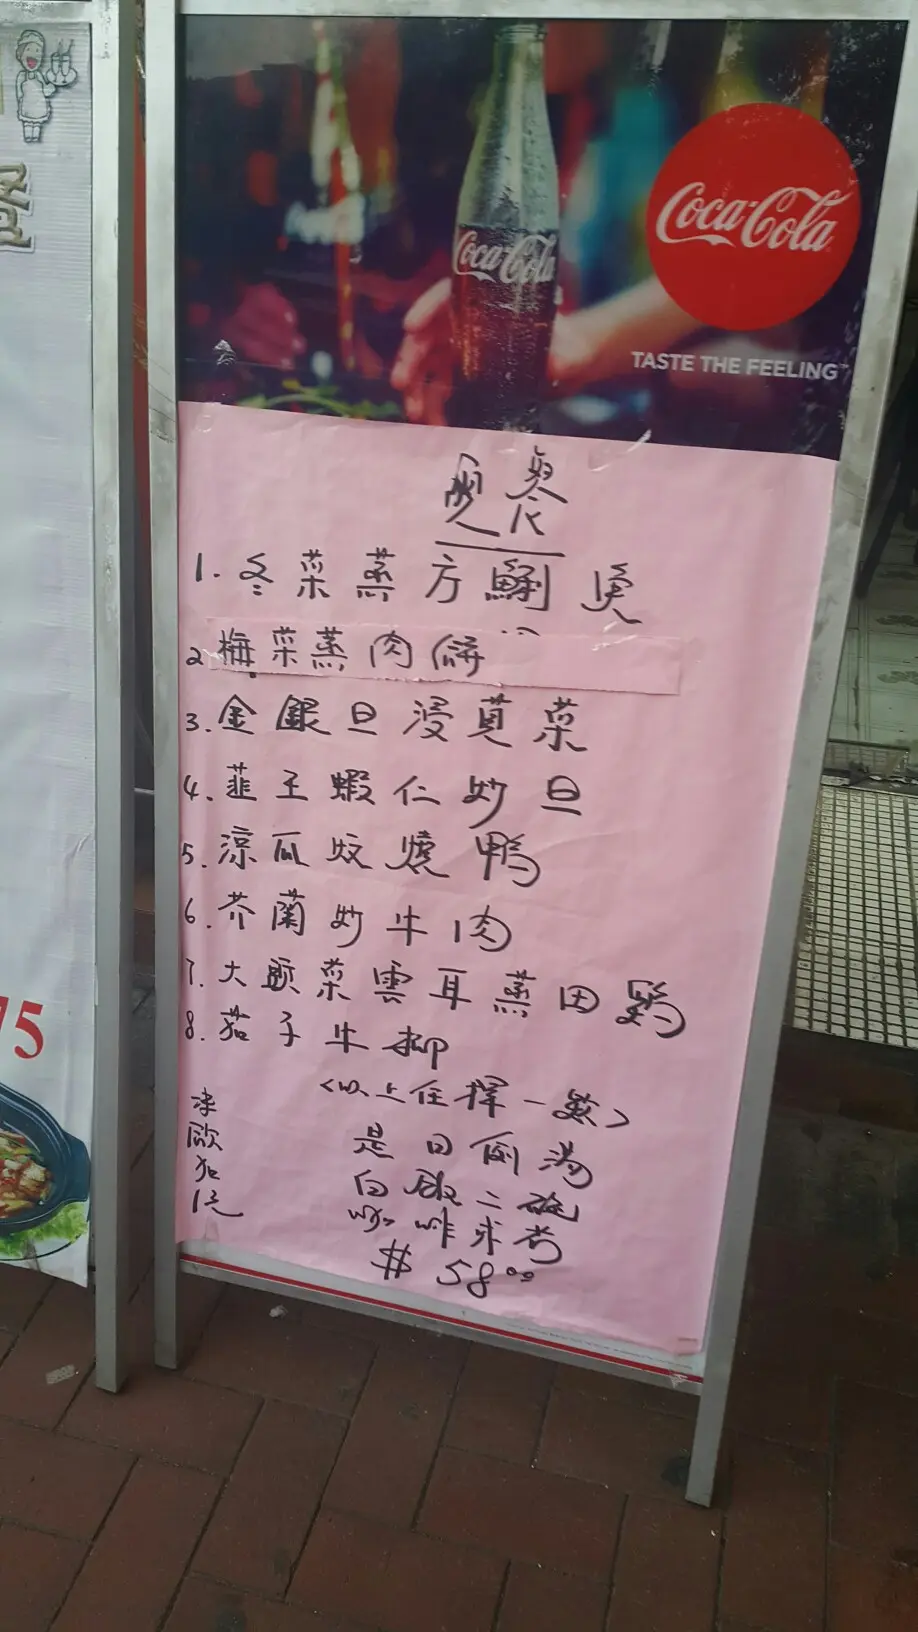 Coca-Cola
Coca-Cola
TASTE THE FEELING
晚餐
1. 冬菜蒸方鯏
2. 梅菜蒸肉餅
3. 金銀旦浸莧菜
4. 韮王蝦仁炒旦
5. 涼瓜炆燒鴨
6. 芥蘭炒牛肉
7. 大頭菜雲耳蒸田鷄
8. 茄子牛柳
<以上任擇一款>
是日例湯
白飯二碗
$ 58.00
75